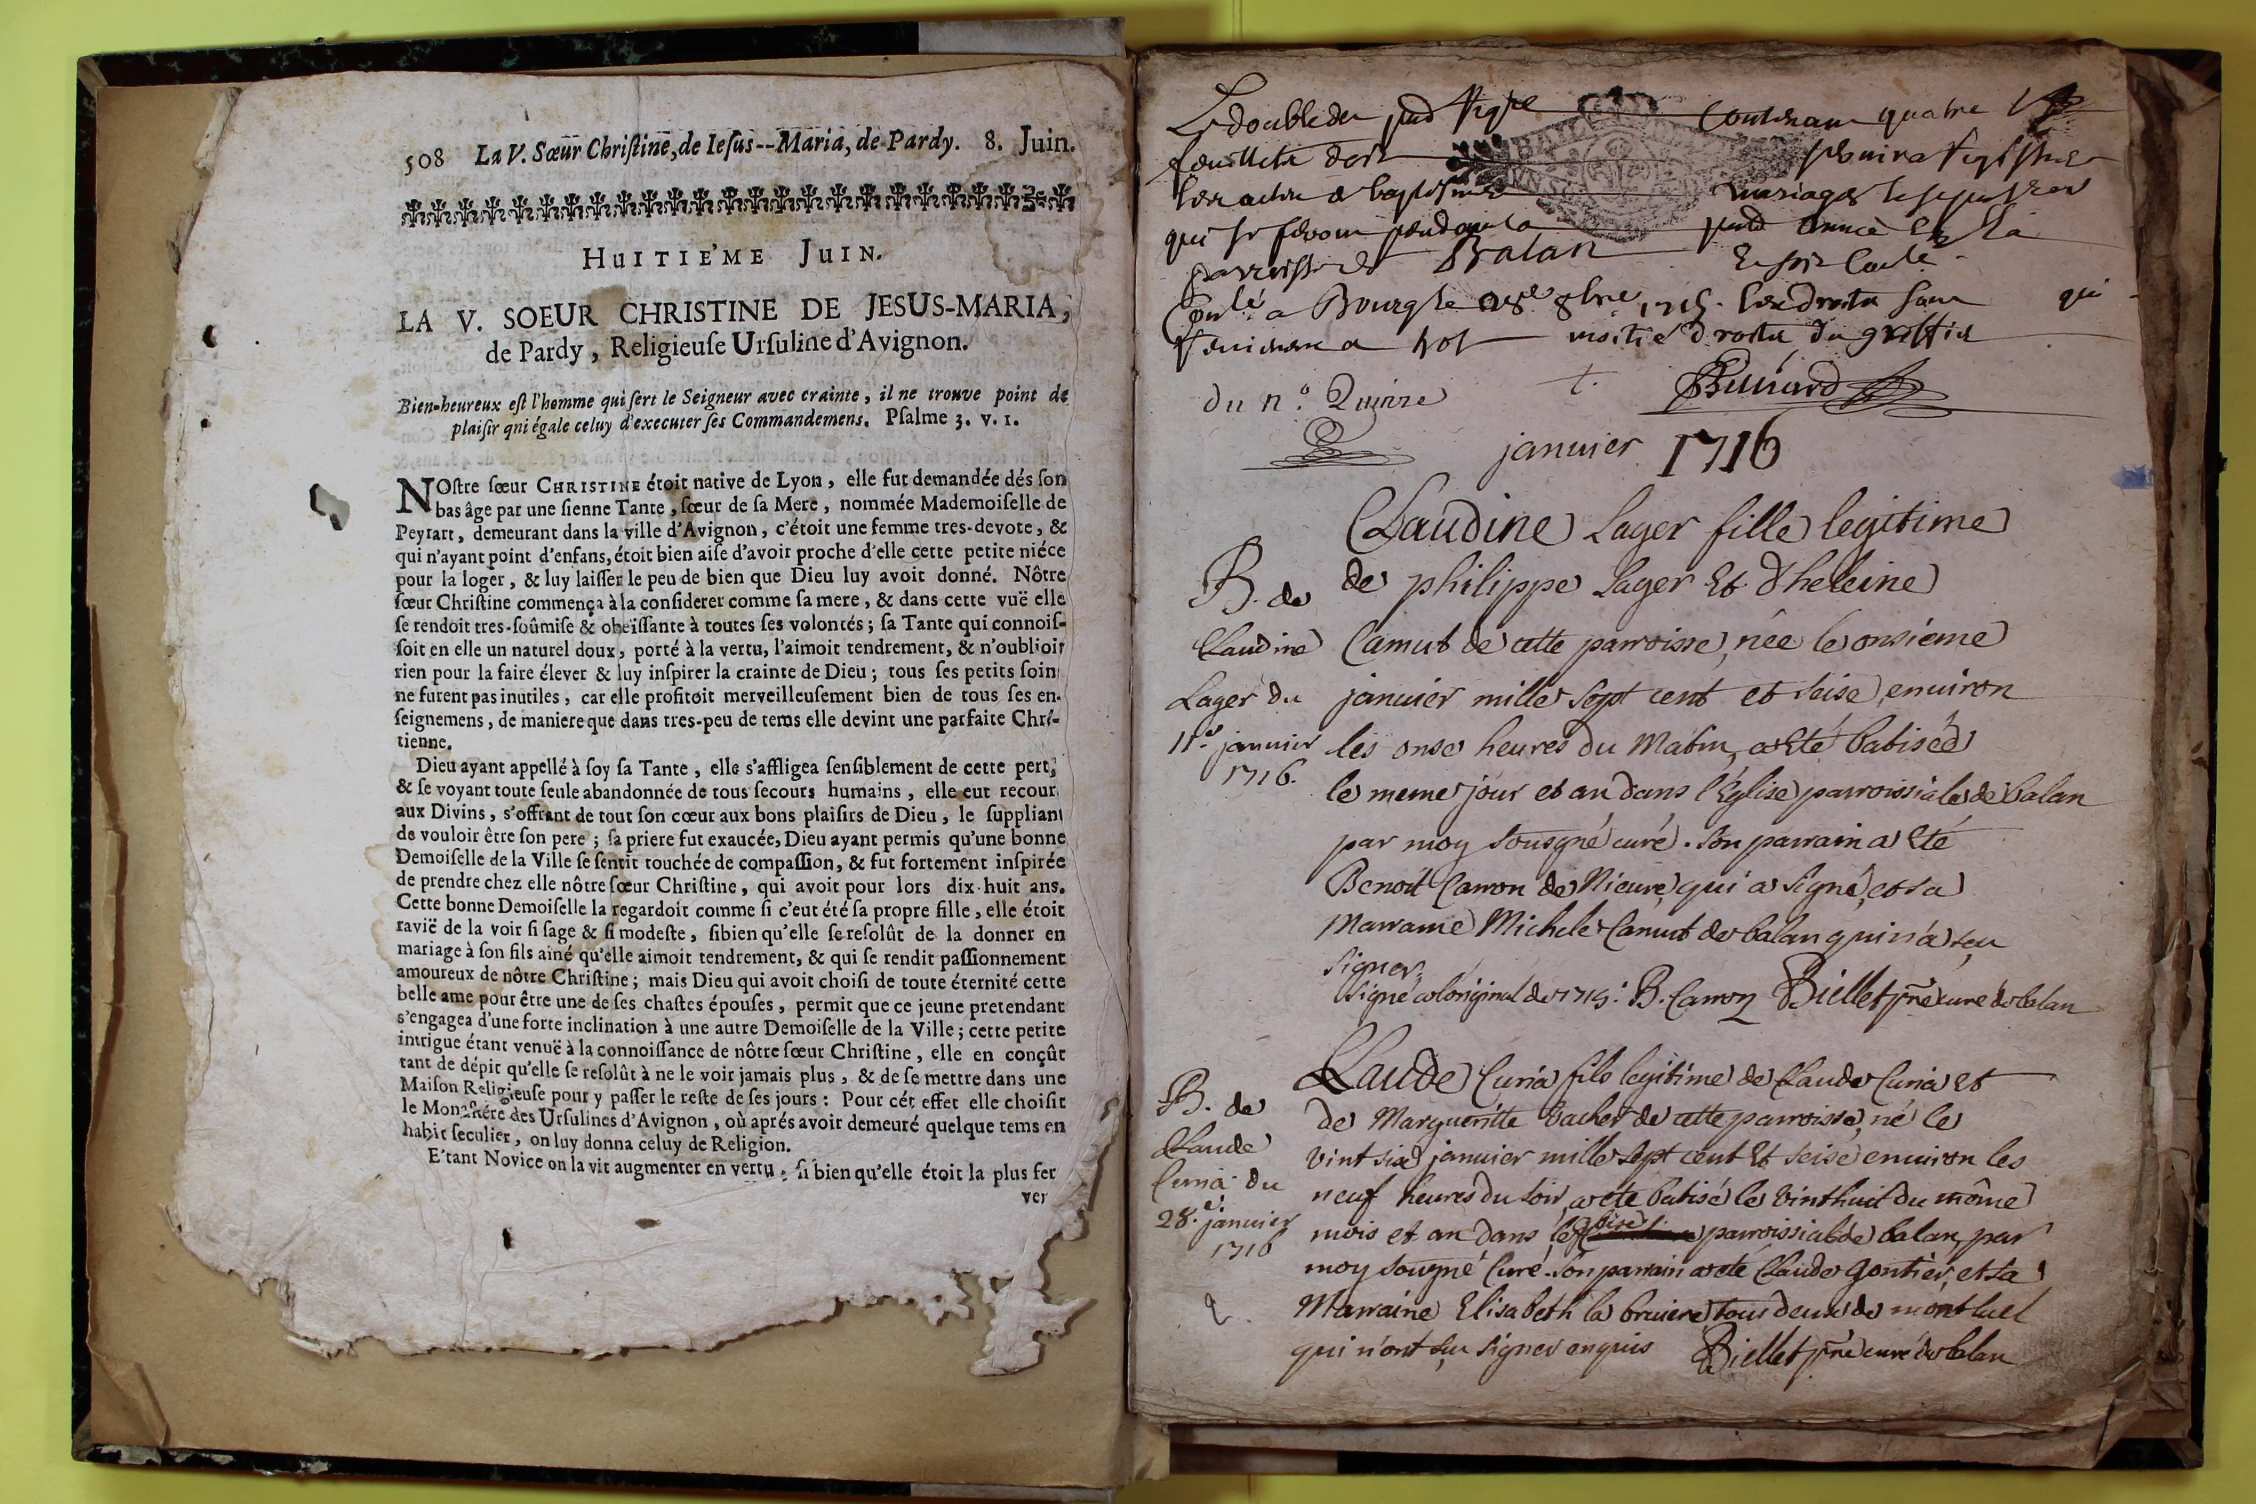 508 La V. Sœur Chriſtine, de Ieſus--Maria, de Pardy. 8. Juin.
HUITIE'ME JUIN.
LA V. SOEUR CHRISTINE DE JESUS-MARIA,
de Pardy, Religieuſe Urſuline d'Avignon.
Bien-heureux eſt l'homme qui ſert le Seigneur avec crainte, il ne trouve point de
plaiſir qui égale celuy d'executer ſes Commandemens. Pſalme 3. v. 1.
NOſtre ſœur CHRISTINE étoit native de Lyon, elle fut demandée dés ſon
bas âge par une ſienne Tante, ſœur de ſa Mere, nommée Mademoiſelle de
Peyrart, demeurant dans la ville d'Avignon, c'étoit une femme tres-devote, &
qui n'ayant point d'enfans, étoit bien aiſe d'avoir proche d'elle cette petite niéce
pour la loger, & luy laiſſer le peu de bien que Dieu luy avoit donné. Nôtre
ſœur Chriſtine commença à la conſiderer comme ſa mere, & dans cette vuë elle
ſe rendoit tres-ſoûmiſe & obeïſſante à toutes ſes volontés; ſa Tante qui connoiſ-
ſoit en elle un naturel doux, porté à la vertu, l'aimoit tendrement, & n'oublioit
rien pour la faire élever & luy inſpirer la crainte de Dieu; tous ſes petits ſoin
ne furent pas inutiles, car elle profitoit merveilleuſement bien de tous ſes en-
ſeignemens, de maniere que dans tres-peu de tems elle devint une parfaite Chrê-
tienne.
Dieu ayant appellé à ſoy ſa Tante, elle s'affligea ſenſiblement de cette pert
& ſe voyant toute ſeule abandonnée de tous ſecours humains, elle eut recour
aux Divins, s'offrant de tout ſon cœur aux bons plaiſirs de Dieu, le ſuppliant
de vouloir être ſon pere; ſa priere fut exaucée, Dieu ayant permis qu'une bonne
Demoiſelle de la Ville ſe ſentit touchée de compaſſion, & fut fortement inſpirée
de prendre chez elle nôtre ſœur Chriſtine, qui avoit pour lors dix-huit ans.
Cette bonne Demoiſelle la regardoit comme ſi c'eut été ſa propre fille, elle étoit
ravië de la voir ſi ſage & ſi modeſte, ſibien qu'elle ſe reſolût de la donner en
mariage à ſon fils ainé qu'elle aimoit tendrement, & qui ſe rendit paſſionnement
amoureux de nôtre Chriſtine; mais Dieu qui avoit choiſi de toute éternité cette
belle ame pour être une de ſes chaſtes épouſes, permit que ce jeune pretendant
s'engagea d'une forte inclination à une autre Demoiſelle de la Ville; cette petite
intrigue étant venuë à la connoiſſance de nôtre ſœur Chriſtine, elle en conçût
tant de dépit qu'elle ſe reſolût à ne le voir jamais plus, & de ſe mettre dans une
Maiſon Religieuſe pour y paſſer le reſte de ſes jours: Pour cét effet elle choiſit
le Monaſtére des Urſulines d'Avignon, où aprés avoir demeuré quelque tems en
habit ſeculier, on luy donna celuy de Religion.
E'tant Novice on la vit augmenter en vertu, ſi bien qu'elle étoit la plus fer
ver
Le double du contenant quatre
feuillets
les actes de baptesmes mariages
qui se feront pendant la année
parroisse de Balan
a Bourg le 1715. les droits
moitié droits du greffier
du n.o Quinze
janvier 1716
B. de
Claudine
Lager du
11.e janvier
1716.
Claudine Lager fille legitime
de philippe Lager Et d'heleine
Camut de cette parroisse, née le onsieme
janvier mille sept cent et seise, environ
les onse heures du Matin, a Eté batiseé
le meme jour et an dans l'Eglise parroissiale de balan
par moy sousigné curé. son parrain a Eté
Benoit Carron de Nieure, qui a signé, et sa
Marraine Michele Camut de balan qui n'a sçu
signer.
signé a l'original de 1715: B. Carron Biellet prê curé de balan
B. de
Claude
Curia du
28.e janvier
1716
Claude Curia fils legitime de Claude Curia Et
de Marguerite vacher de cette parroisse, né le
vint six janvier mille sept cent Et seise environ les
neuf heures du soir, a eté batisé le vint huit du même
mois et an dans l'eglise parroissiale de balan, par
moy sousigné Curé. son parrain a eté Claude Gontier, et sa
Marraine Elisabeth la bruiere tous deux de montluel
qui n'ont sçu signer enquis Biellet prê curé de balan